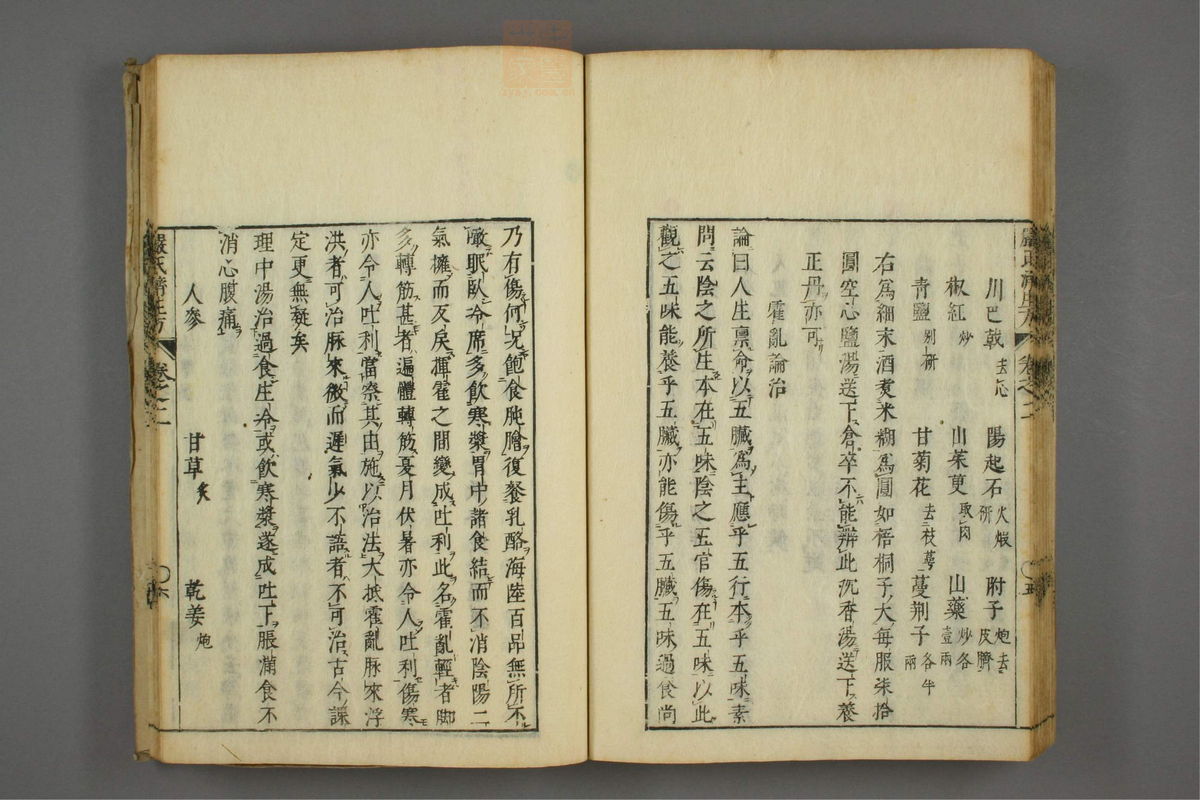 川巴戟去心 陽起石火煅研 附子炮去皮臍
椒紅炒 山茱萸取肉 山藥炒各壹兩
青鹽別研 甘菊花去枝萼 蔓荆子各半兩
右爲細末酒煑米糊爲圓如梧桐子大每服柒拾
圓空心鹽湯送下倉卒不能辦此沉香湯送下養
正丹亦可
霍亂論治
論曰人生禀命以五臟爲主應乎五行本乎五味素
問云陰之所生本在五味陰之五官傷在五味以此
觀之五味能養乎五臟亦能傷乎五臟五味過食尚
嚴氏濟生方 卷之二 〇五
乃有傷何况飽食肫膾復餐乳酪海陸百品無所不
噉眠臥冷席多飲寒漿胃中諸食結而不消陰陽二
氣擁而反戾揮霍之間變成吐利此名霍亂輕者脚
多轉筋甚者遍體轉筋夏月伏暑亦令人吐利傷寒
亦令人吐利當察其由施以治法大抵霍亂脉來浮
洪者可治脉來微而遲氣少不語者不可治古今課
定更無疑矣
理中湯治過食生冷或飲寒漿遂成吐下脹滿食不
消心腹痛
人參 甘草炙 乾姜炮
嚴氏濟生方 卷之二 〇六